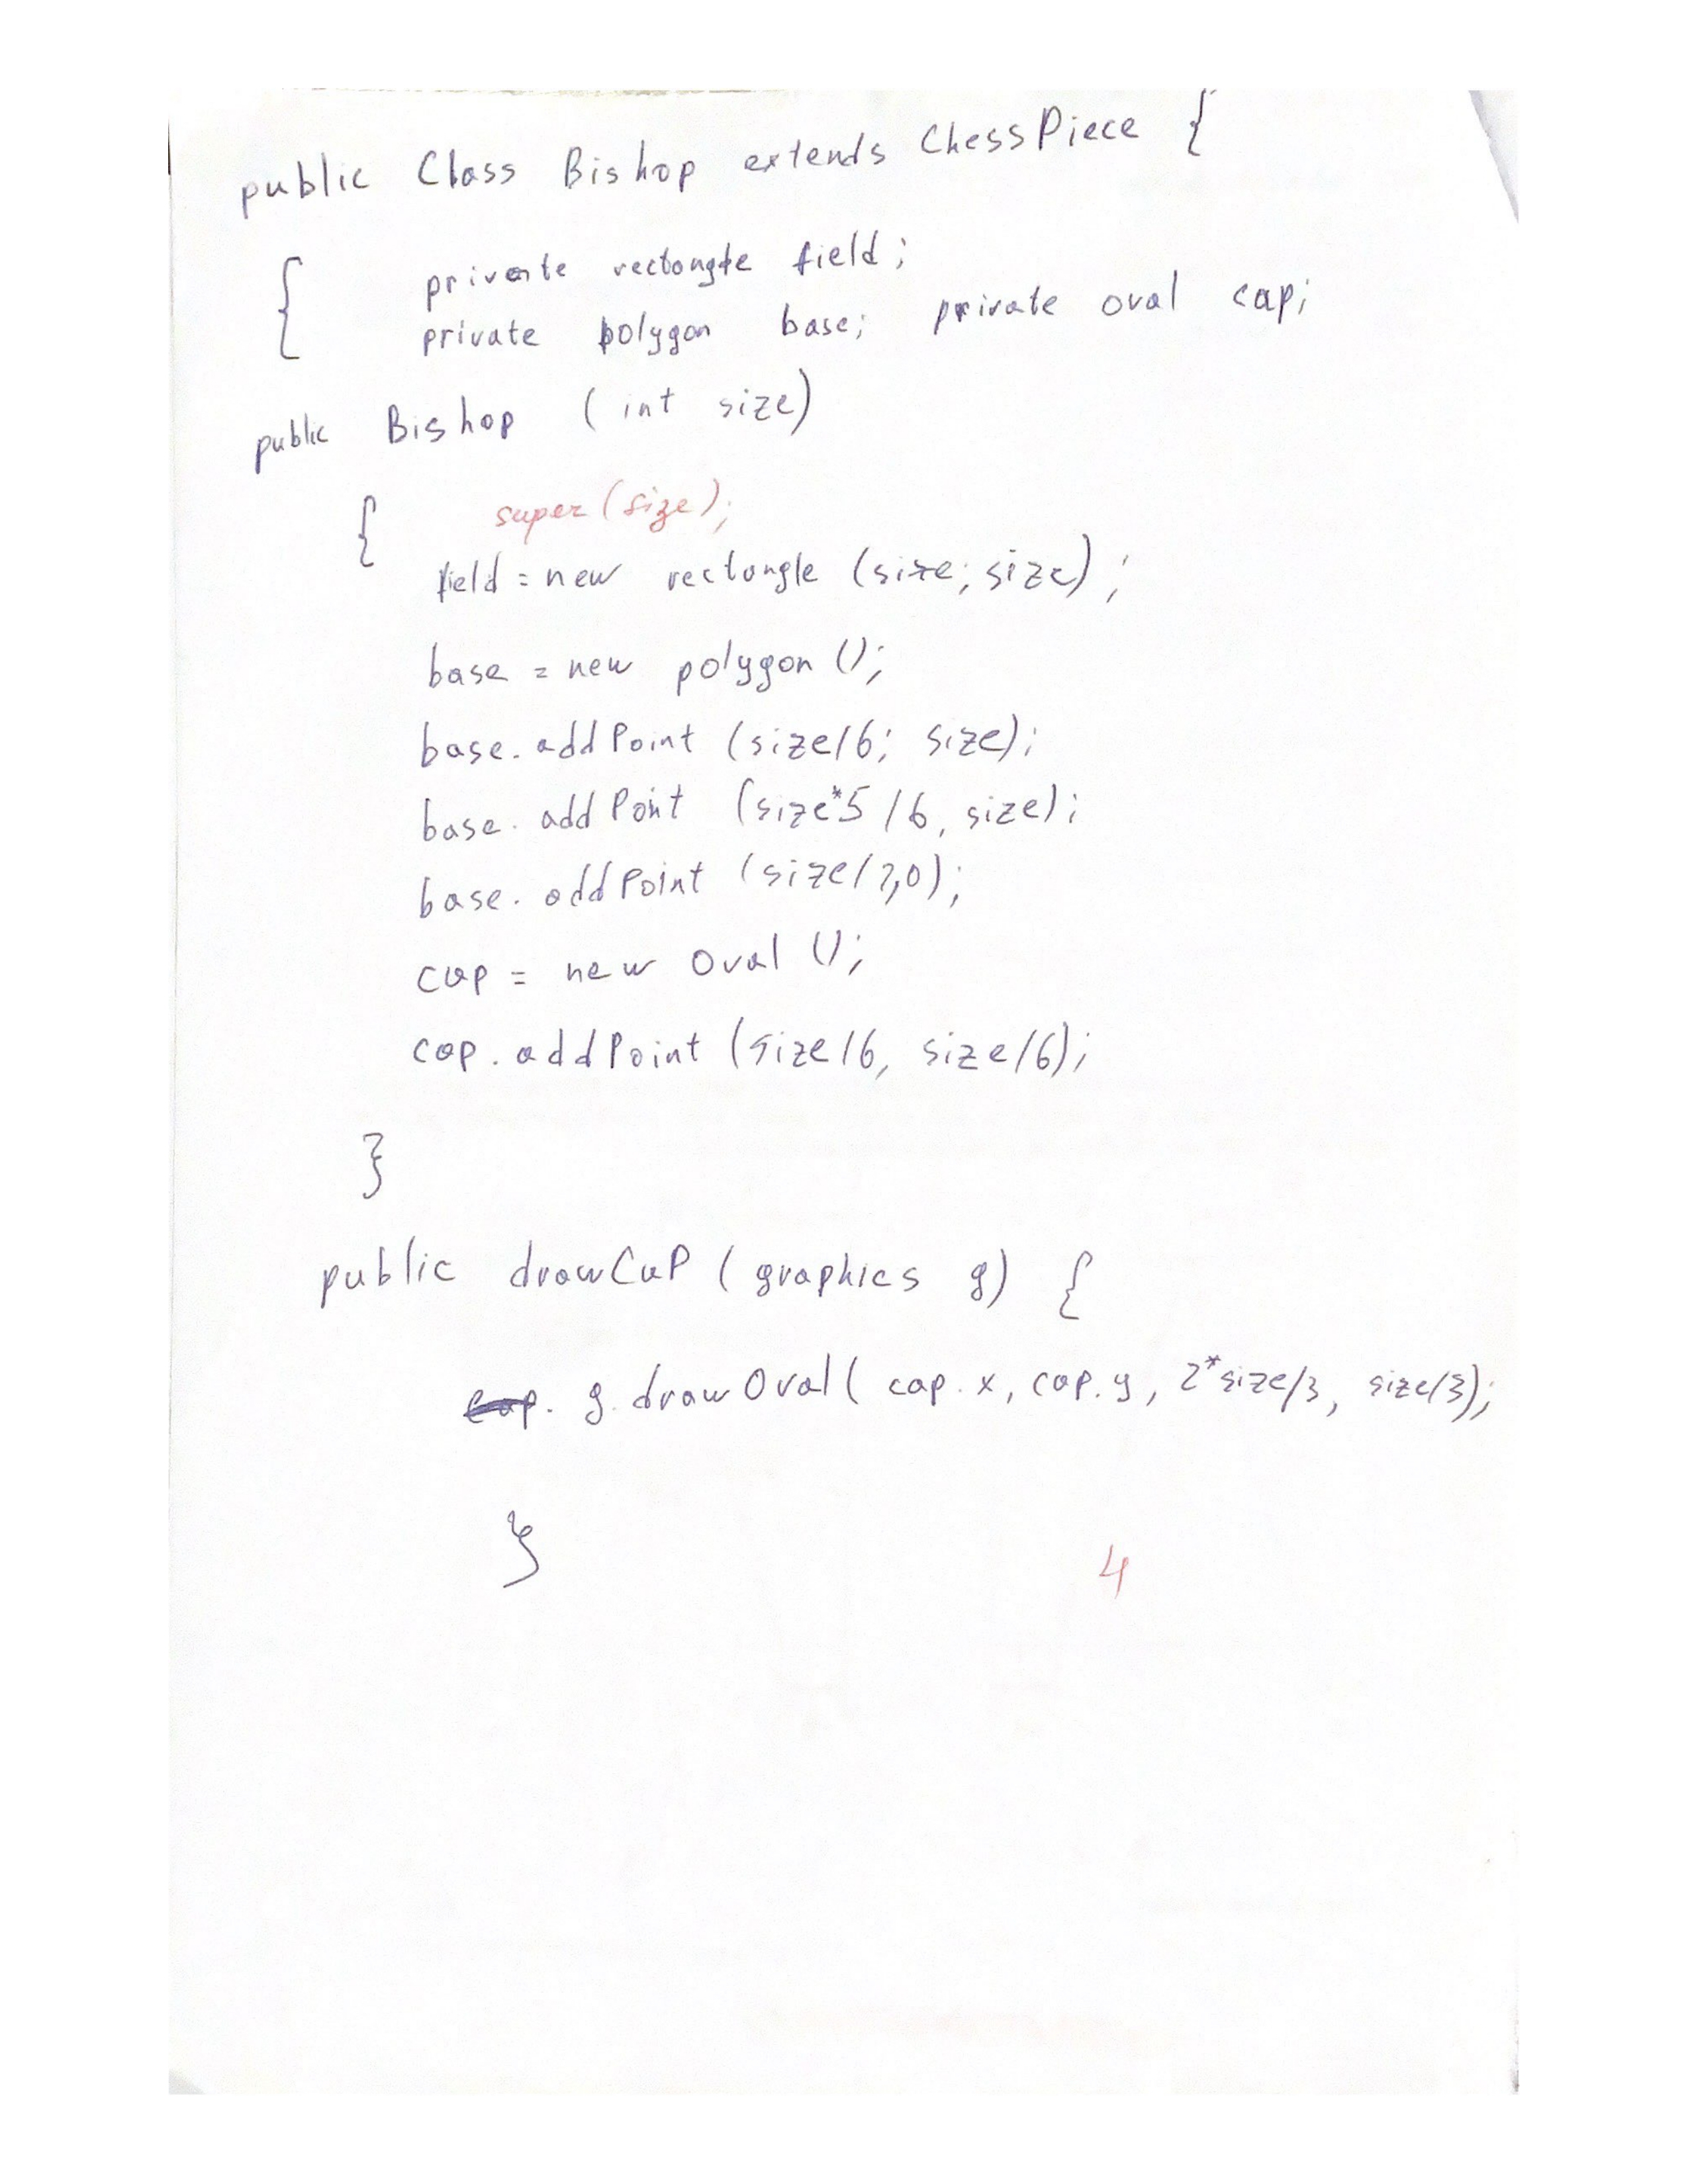 public Class Bishop extends ChessPiece {
{ private rectangle field;
private polygon base; private oval cap;
public Bishop (int size)
{ super(size);
field = new rectangle (size; size);
base = new polygon ();
base.addPoint (size/6; size);
base.addPoint (size*5/6, size);
base.addPoint (size/2,0);
cap = new Oval ();
cap.addPoint (size/6, size/6);
}
public drawCaP (graphics g) {
cap. g.drawOval( cap.x, cap.y, 2*size/3, size/3);
}
4